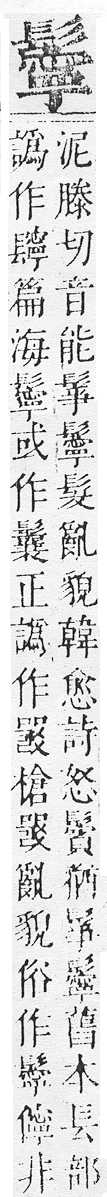 鬡
泥滕切音能鬇鬡髮亂貌韓愈詩怒鬚猶鬇鬡舊本長部
譌作篇海鬡或作鬤正譌作槍亂貌俗作鬡儜非